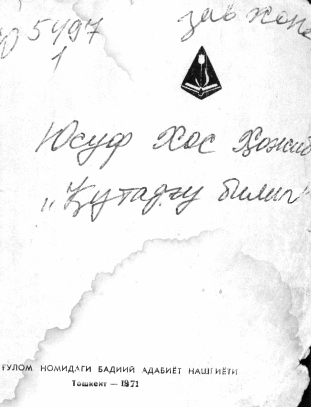 5497
1
Юсуф Хос Ҳожиб
„Қутадғу билиг"
ҒУЛОМ НОМИДАГИ БАДИИЙ АДАБИЁТ НАШРИЁТИ
Тошкент — 1971